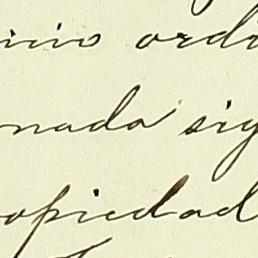 inio ordi
nada sig
opiedad